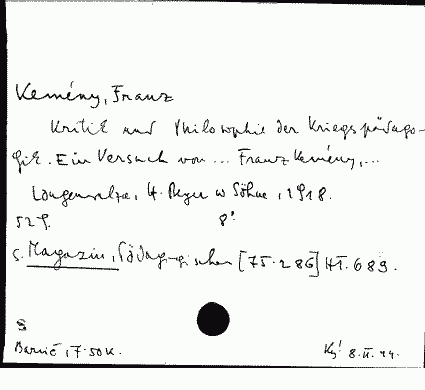 Kemény, Franz
Kritik und Philosophie der Kriegspädago-
gik. Ein Versuch von ... Franz Kemény, ...
Langensalza, H. Beyer u Söhne, 1918.
52 S. 8°
S. Magazin, Pädagogisches [75.286] HT. 689.
8. II. 44.